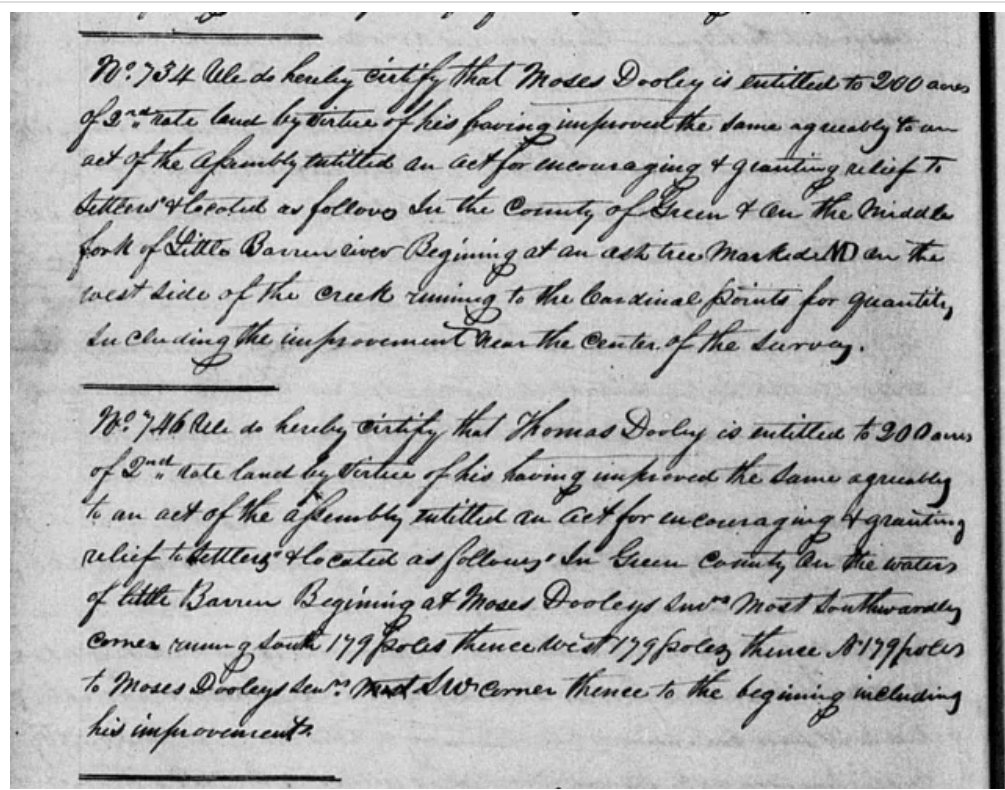 No. 734 We do hereby certify that Moses Dooley is entitled to 200 acres
of 2nd rate land by Virtue of his having improved the same agreeably to an
act of the Assembly entitled an act for encouraging & granting relief to
Settlers & located as follows In the County of Green & on the Middle
fork of Little Barren river Begining at an ash tree Marked MD on the
west side of the creek runing to the Cardinal points for quantity
Including the improvement Near the Center of the Survey.
No. 746 We do hereby certify that Thomas Dooley is entitled to 200 acres
of 2nd rate land by Virtue of his having improved the same agreeably
to an act of the assembly entitled an act for encouraging & granting
relief to Settlers & located as follows In Green County on the waters
of little Barren Begining at Moses Dooleys Most Southwardly
corner runing South 179 poles thence West 179 poles thence N 179 poles
to Moses Dooleys SW corner thence to the begining including
his improvements.